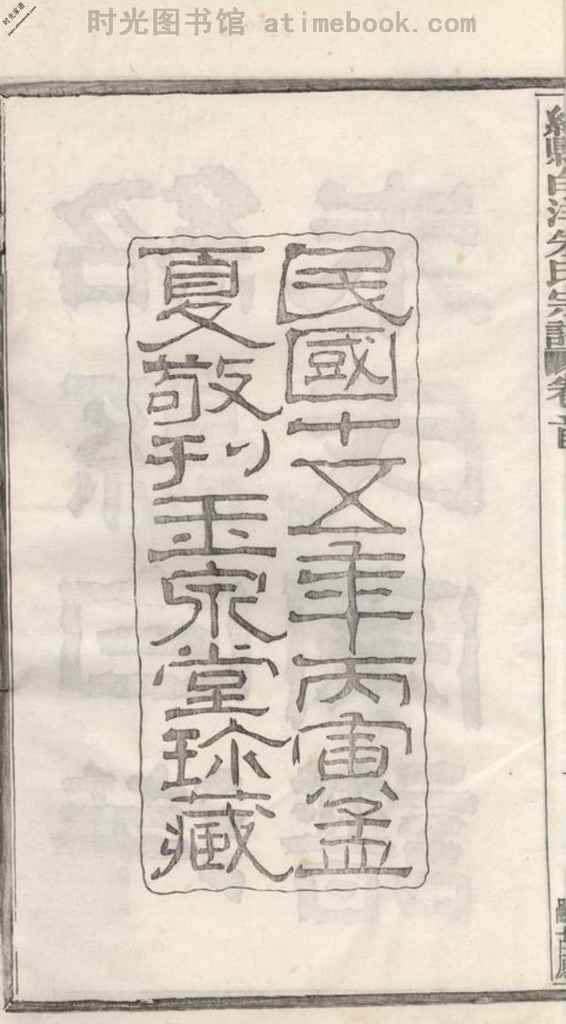 时光图书馆 atimebook.com
民國十五年丙寅孟
夏敬刊玉泉堂珎藏
朱氏宗譜
卷首